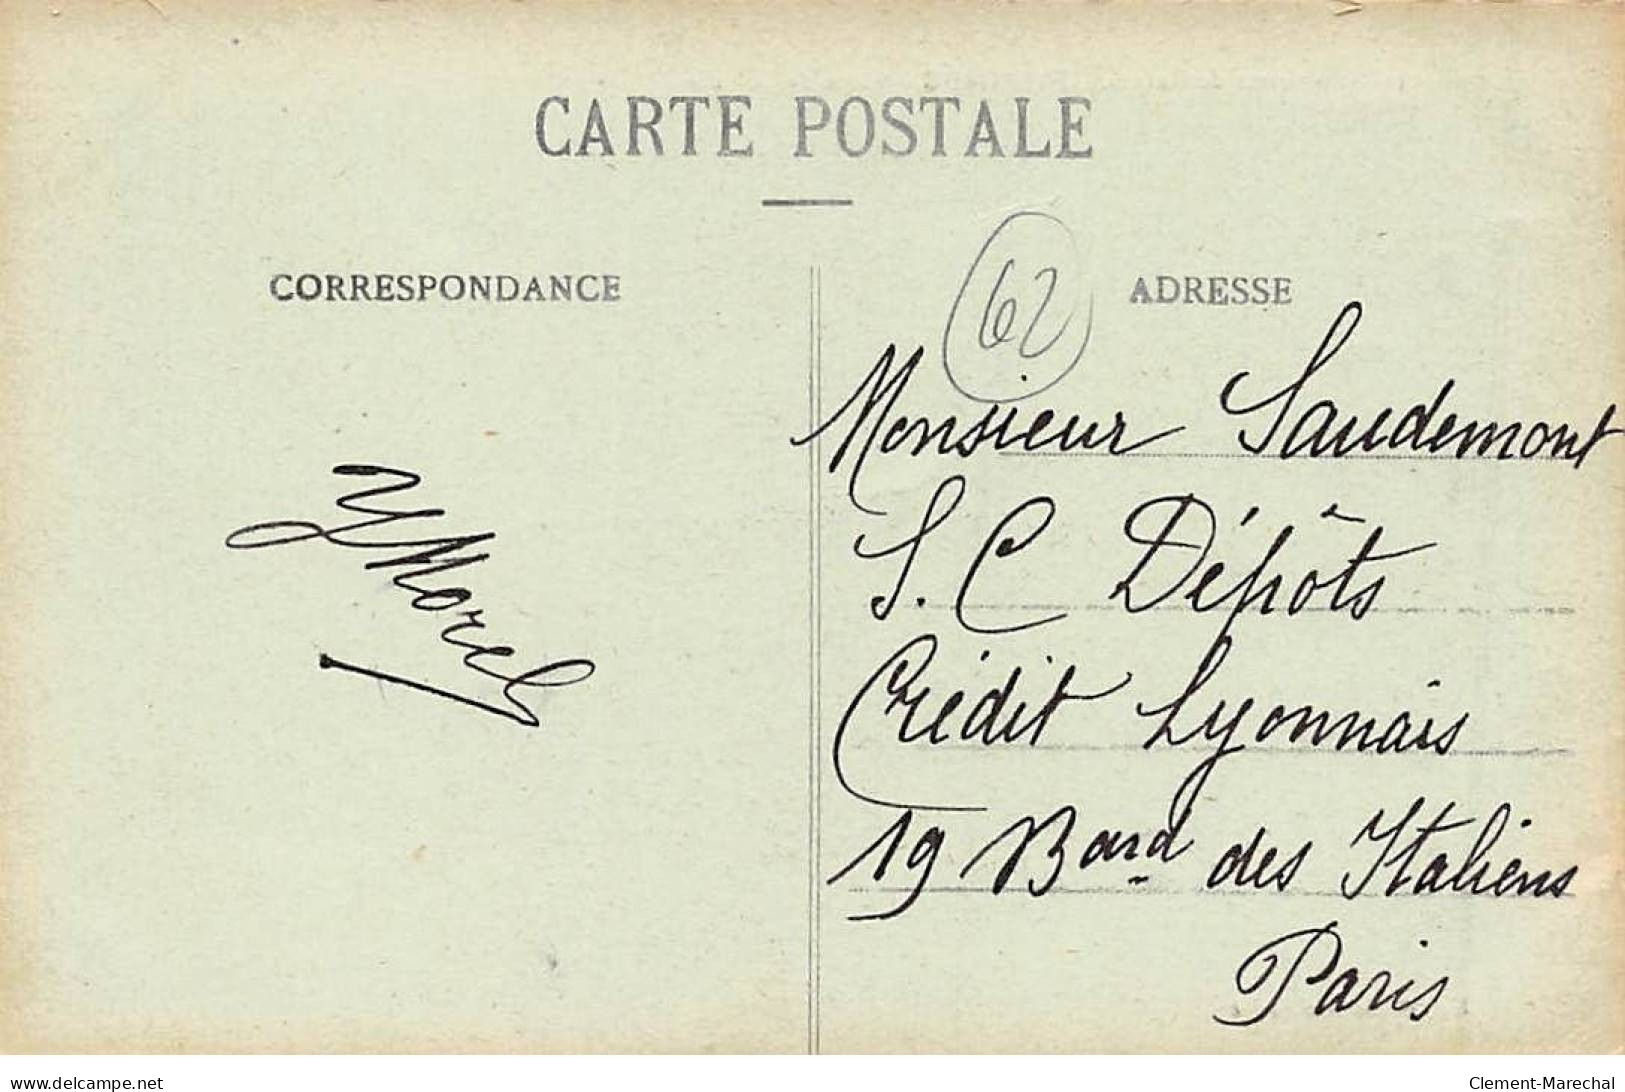 CARTE POSTALE
CORRESPONDANCE
YMorel
62
ADRESSE
Monsieur Saudemont
S. C Dépôts
Crédit Lyonnais
19 Bard des Italiens
Paris
www.delcampe.net
Clement-Marechal